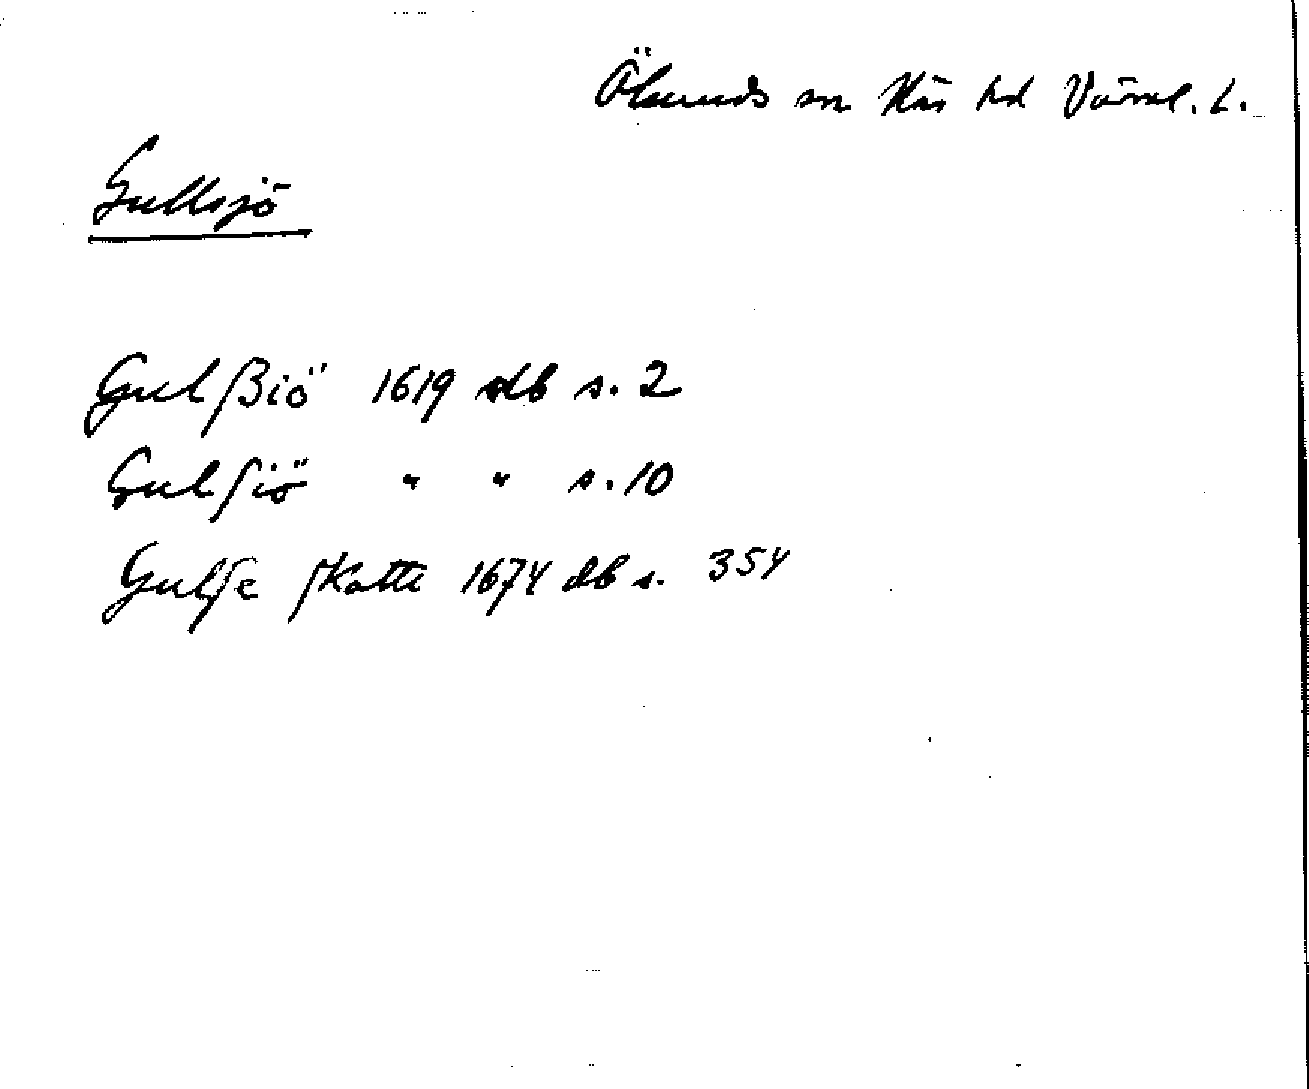 Ölseruds sn Näs hd Värml. L.
Gullsjö
Gulſsiö 1619 db s. 2
Gulſiö " " s. 10
Gulſe ſkatte 1674 db s. 354